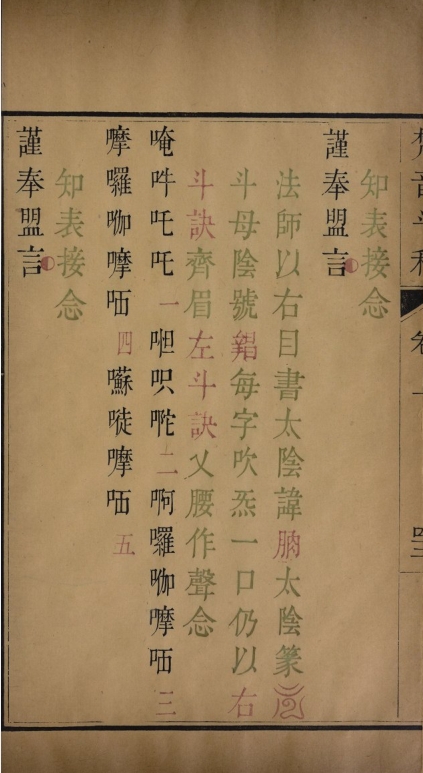 梵音斗科 卷 一 四三
知表接念
謹奉盟言
法師以右目書太陰諱朒太陰篆
斗母陰號䥫每字吹炁一口仍以右
斗訣齊眉左斗訣叉腰作聲念
唵吽吒吒一呾呮咜二啊囉㗎摩𠱀三
摩囉㗎摩𠱀四囌㖍摩𠱀五
知表接念
謹奉盟言